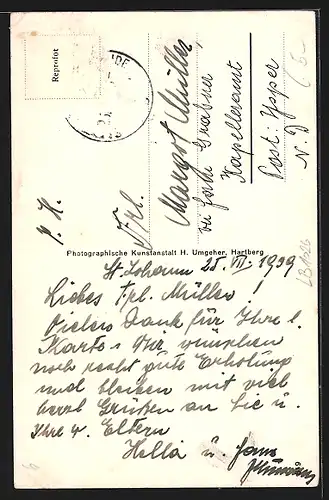 Reprofot
P. H.
Frl.
Margot Müller
bei Forstv. Grabner
Kapelleramt
Post: Ysper
N. D.
Photographische Kunstanstalt H. Umgeher, Hartberg
St. Johann 25. VII. 1939
Liebes Frl. Müller!
Vielen Dank für Ihre l.
Karte. Wir wünschen
noch recht gute Erholung
und bleiben mit viel
herzl. Grüßen an Sie u.
Ihre w. Eltern
Hella u.